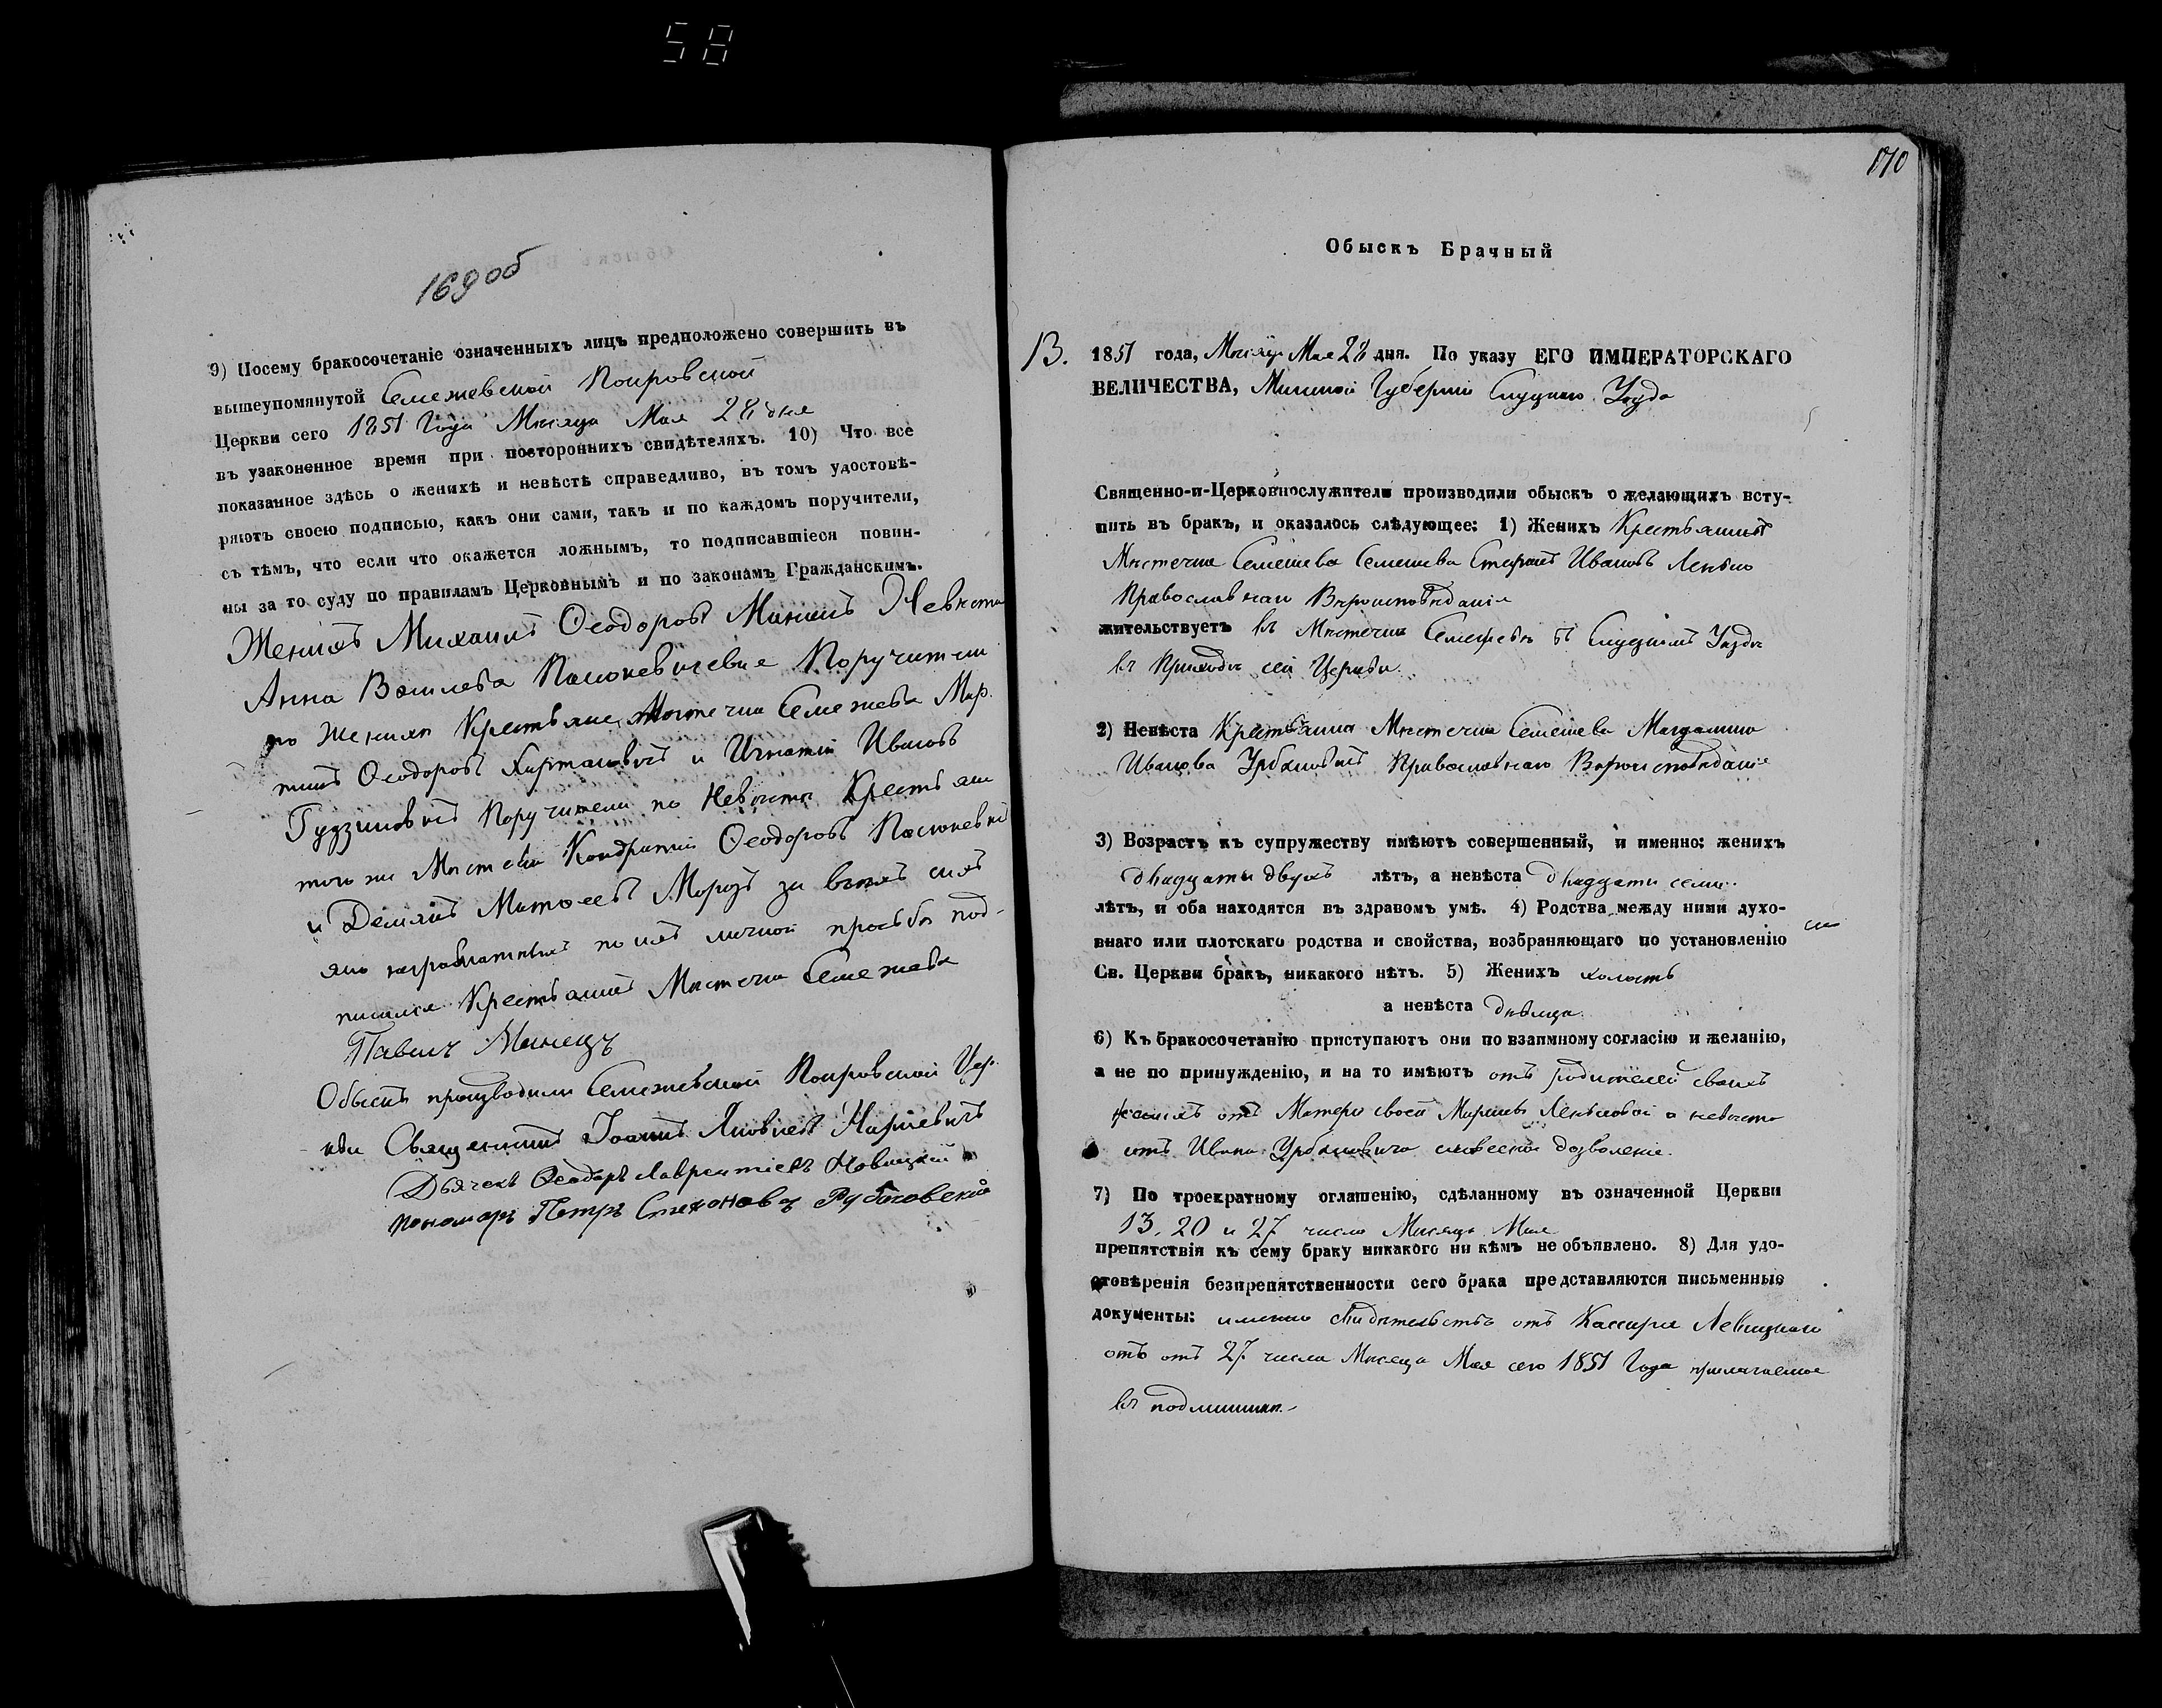 58
169 об
9) Посему бракосочетаніе означенныхъ лицъ предположено совершить въ
вышеупомянутой Семежевской Покровской
Церкви сего 1851 Года Мѣсяца Мая 28 дня
въ узаконенное время при постороннихъ свидѣтеляхъ. 10) Что все
показанное здѣсь о женихѣ и невѣстѣ справедливо, въ томъ удостовѣ-
ряютъ своею подписью, какъ они сами, такъ и по каждомъ поручители,
съ тѣмъ, что если что окажется ложнымъ, то подписавшіеся повин-
ны за то суду по правиламъ Церковнымъ и по законамъ Гражданскимъ.
Женихъ Михаилъ Ѳеодоровъ Невѣста
Анна Васильева Поручители
по Женихѣ Крестьяне Мѣстечка Семежева Мар-
тинъ Ѳеодоровъ и Игнатій Ивановъ
Гудзиновичъ Поручители по Невѣстѣ Крестьяне
того же Мѣстечка Кондратій Ѳеодоровъ Пасюкевичъ
и Демянъ Матѳеевъ Морозъ за всѣхъ сихъ
яко неграматныхъ по ихъ личной просьбѣ под-
писался Крестьянинъ Мѣстечка Семежева
Павелъ Минецъ
Обыскъ производили Семежевской Покровской Цер-
кви Священникъ Іоаннъ Яковлевъ
Дьячекъ Ѳеодоръ Лаврентіевъ Новицкій
пономарь Петръ Стефоновъ
170
Обыскъ Брачный
13. 1851 года, Мѣсяца Мая 28 дня. По указу ЕГО ИМПЕРАТОРСКАГО
ВЕЛИЧЕСТВА, Минской Губерніи Слуцкаго Уѣзда
Священно-и-Церковнослужители производили обыскъ о желающихъ всту-
пить въ бракъ, и оказалось слѣдующее: 1) Женихъ Крестьянинъ
Мѣстечка Семежева Семежева Стефанъ Ивановъ Ленько
Православнаго Вѣроисповѣданія
жительствуетъ въ Мѣстечкѣ Семежевѣ въ Слуцкомъ Уѣздѣ
въ Приходѣ сей Церкви.
2) Невѣста Крестьянка Мѣстечка Семежева Магдалина
Иванова Урбановичъ Православнаго Вѣроисповѣданія
3) Возрастъ къ супружеству имѣютъ совершенный, и именно: женихъ
двадцати двухъ лѣтъ, а невѣста двадцати семи
лѣтъ, и оба находятся въ здравомъ умѣ. 4) Родства между ними духо-
внаго или плотскаго родства и свойства, возбраняющаго по установленію
Св. Церкви бракъ, никакого нѣтъ. 5) Женихъ холостъ
а невѣста дѣвица
6) Къ бракосочетанію приступаютъ они по взаимному согласію и желанію,
а не по принужденію, и на то имѣютъ отъ родителей своихъ
женихъ отъ Матери своей Леньковой а невѣста
отъ Ивана Урбановича словесное дозволеніе.
7) По троекратному оглашенію, сдѣланному въ означенной Церкви
13, 20 и 27 числа Мѣсяца Мая
препятствія къ сему браку никакого ни кѣмъ не объявлено. 8) Для удо-
стовѣренія безпрепятственности сего брака представляются письменные
документы: именно свидѣтельство отъ Кассира Левицкаго
отъ 27 числа Мѣсяца Мая сего 1851 Года прилагаемое
въ подлинникѣ.